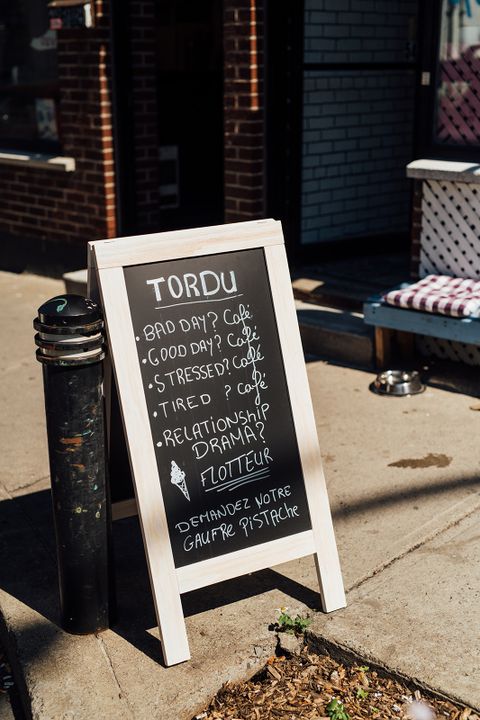 TORDU
• BAD DAY? Café
• GOOD DAY? Café
• STRESSED? Café
• TIRED ? Café
• RELATIONSHIP
DRAMA?
FLOTTEUR
DEMANDEZ NOTRE
GAUFRE PISTACHE